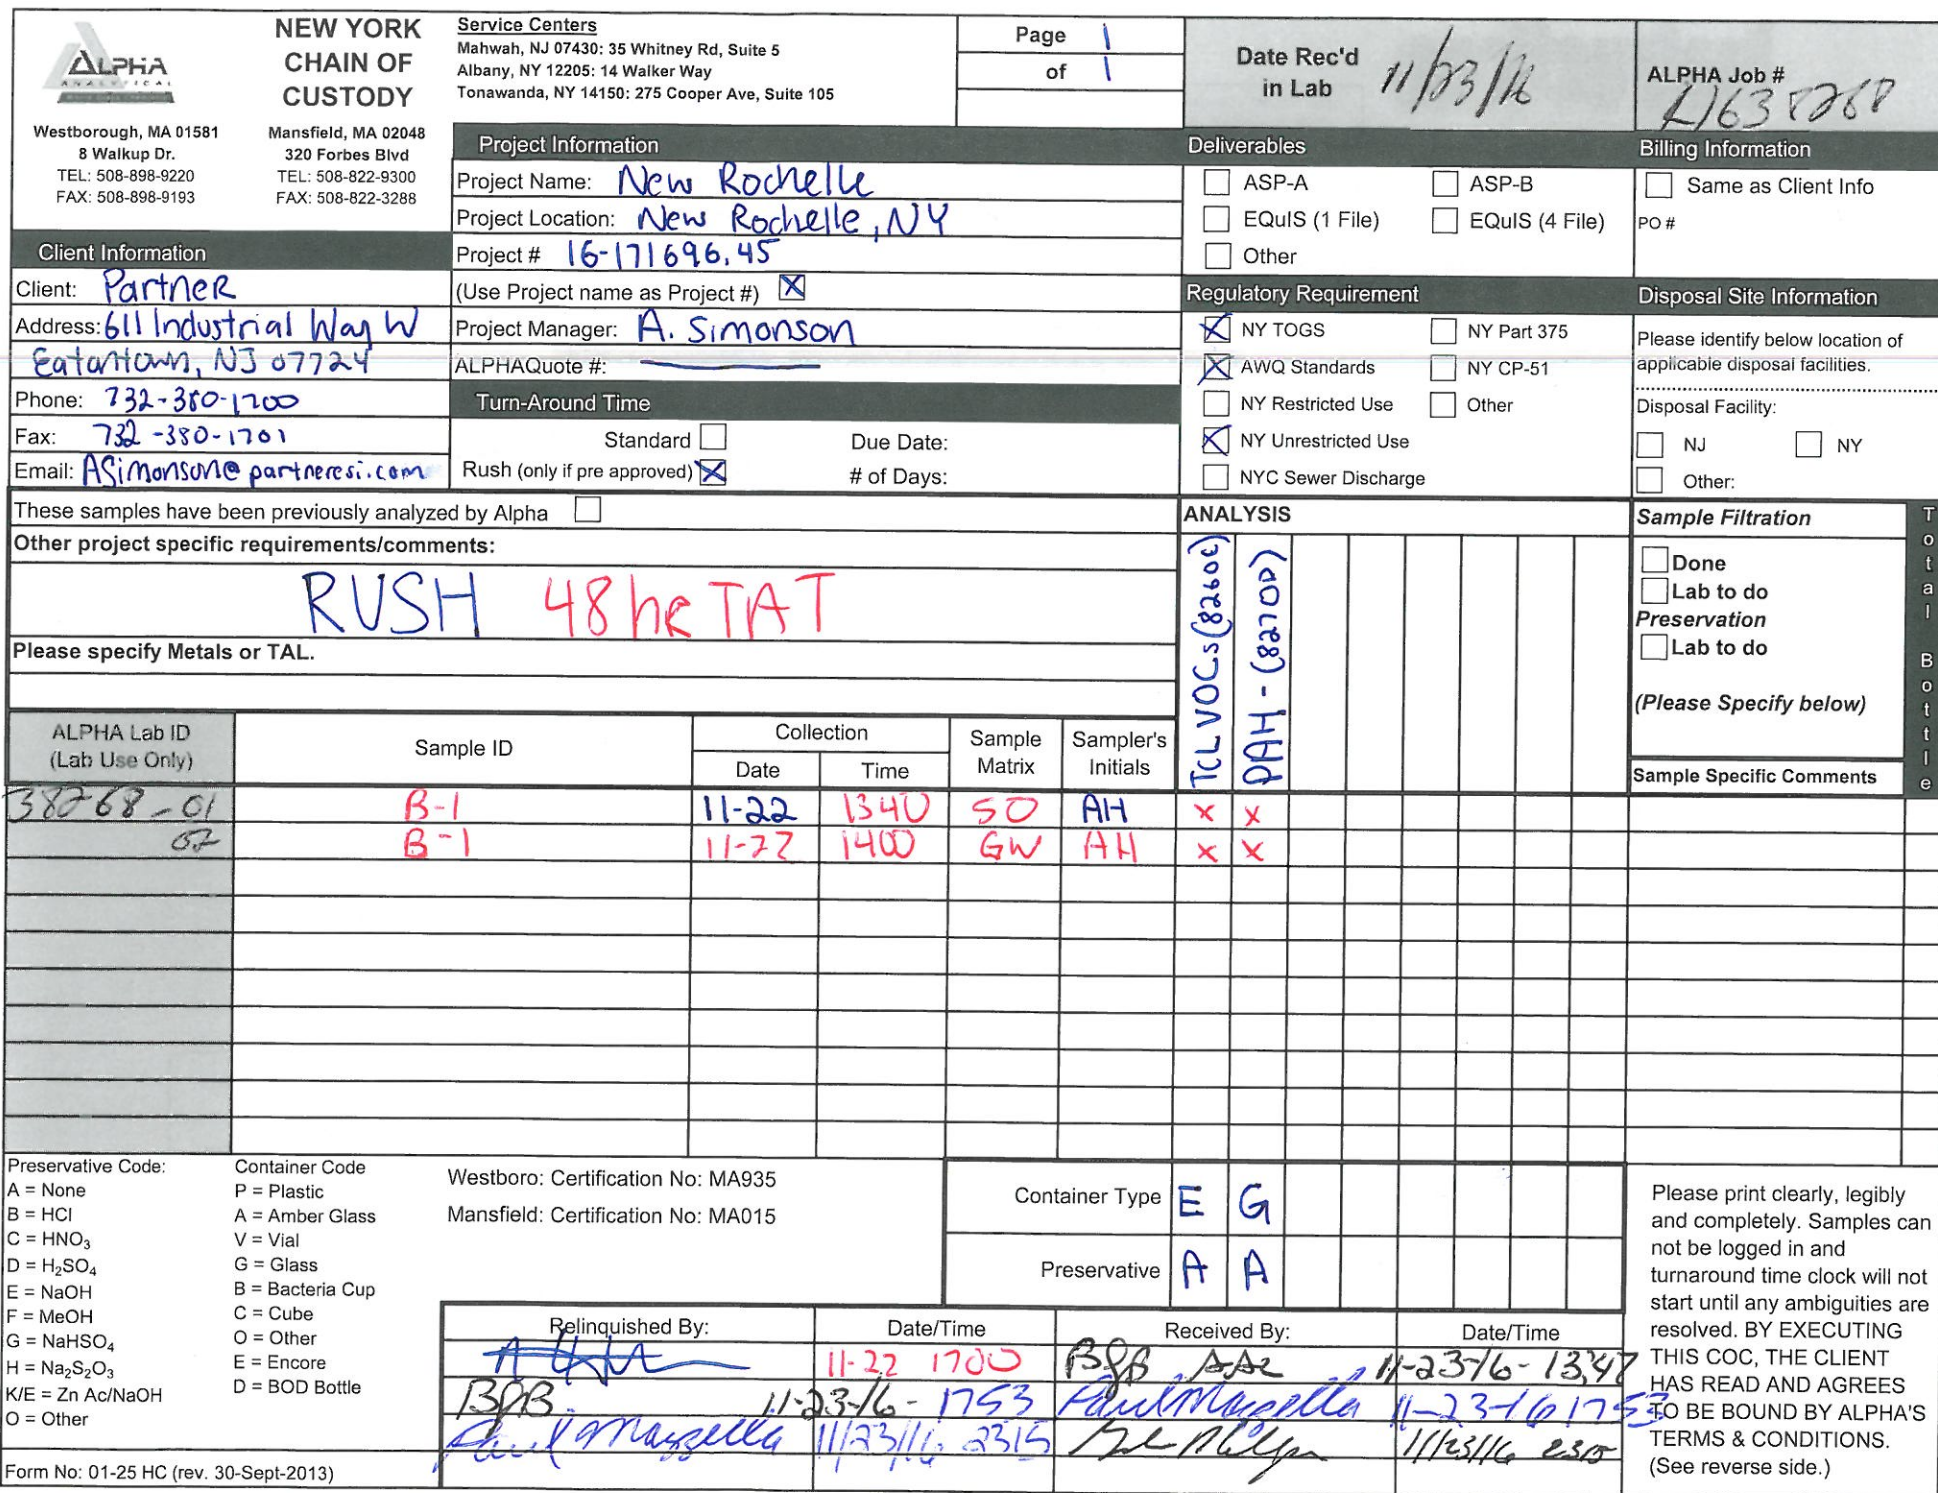 ALPHA
ANALYTICAL
NEW YORK
CHAIN OF
CUSTODY
Westborough, MA 01581
8 Walkup Dr.
TEL: 508-898-9220
FAX: 508-898-9193
Mansfield, MA 02048
320 Forbes Blvd
TEL: 508-822-9300
FAX: 508-822-3288
Service Centers
Mahwah, NJ 07430: 35 Whitney Rd, Suite 5
Albany, NY 12205: 14 Walker Way
Tonawanda, NY 14150: 275 Cooper Ave, Suite 105
Page 1
of 1
Date Rec'd
in Lab 11/23/16
ALPHA Job #
L1638268
Client Information
Client: Partner
Address: 611 Industrial Way W
Eatontown, NJ 07724
Phone: 732-380-1700
Fax: 732-380-1701
Email: ASimonson@partneresi.com
Project Information
Project Name: New Rochelle
Project Location: New Rochelle, NY
Project # 16-171696.45
(Use Project name as Project #) X
Project Manager: A. Simonson
ALPHAQuote #:
Turn-Around Time
Standard
Due Date:
Rush (only if pre approved) X
# of Days:
Deliverables
ASP-A
ASP-B
EQuIS (1 File)
EQuIS (4 File)
Other
Regulatory Requirement
X NY TOGS
NY Part 375
X AWQ Standards
NY CP-51
NY Restricted Use
Other
X NY Unrestricted Use
NYC Sewer Discharge
Billing Information
Same as Client Info
PO #
Disposal Site Information
Please identify below location of
applicable disposal facilities.
Disposal Facility:
NJ
NY
Other:
These samples have been previously analyzed by Alpha
Other project specific requirements/comments:
RUSH 48 hr TAT
Please specify Metals or TAL.
ANALYSIS
TCL VOCs (8260C)
PAH - (8270D)
Sample Filtration
Done
Lab to do
Preservation
Lab to do
(Please Specify below)
Sample Specific Comments
Total Bottle
ALPHA Lab ID
(Lab Use Only)
Sample ID
Collection
Date
Time
Sample
Matrix
Sampler's
Initials
38268-01 B-1 11-22 1340 SO AH X X
02 B-1 11-22 1400 GW AH X X
Preservative Code:
A = None
B = HCl
C = HNO3
D = H2SO4
E = NaOH
F = MeOH
G = NaHSO4
H = Na2S2O3
K/E = Zn Ac/NaOH
O = Other
Container Code
P = Plastic
A = Amber Glass
V = Vial
G = Glass
B = Bacteria Cup
C = Cube
O = Other
E = Encore
D = BOD Bottle
Westboro: Certification No: MA935
Mansfield: Certification No: MA015
Container Type E G
Preservative A A
Relinquished By:
Date/Time
Received By:
Date/Time
11-22 1700
11-23-16 - 13:47
11-23-16 - 1753 Paul Mazzella 11-23-16 1753
Paul Mazzella 11/23/16 2315
11/23/16 2315
Please print clearly, legibly
and completely. Samples can
not be logged in and
turnaround time clock will not
start until any ambiguities are
resolved. BY EXECUTING
THIS COC, THE CLIENT
HAS READ AND AGREES
TO BE BOUND BY ALPHA'S
TERMS & CONDITIONS.
(See reverse side.)
Form No: 01-25 HC (rev. 30-Sept-2013)